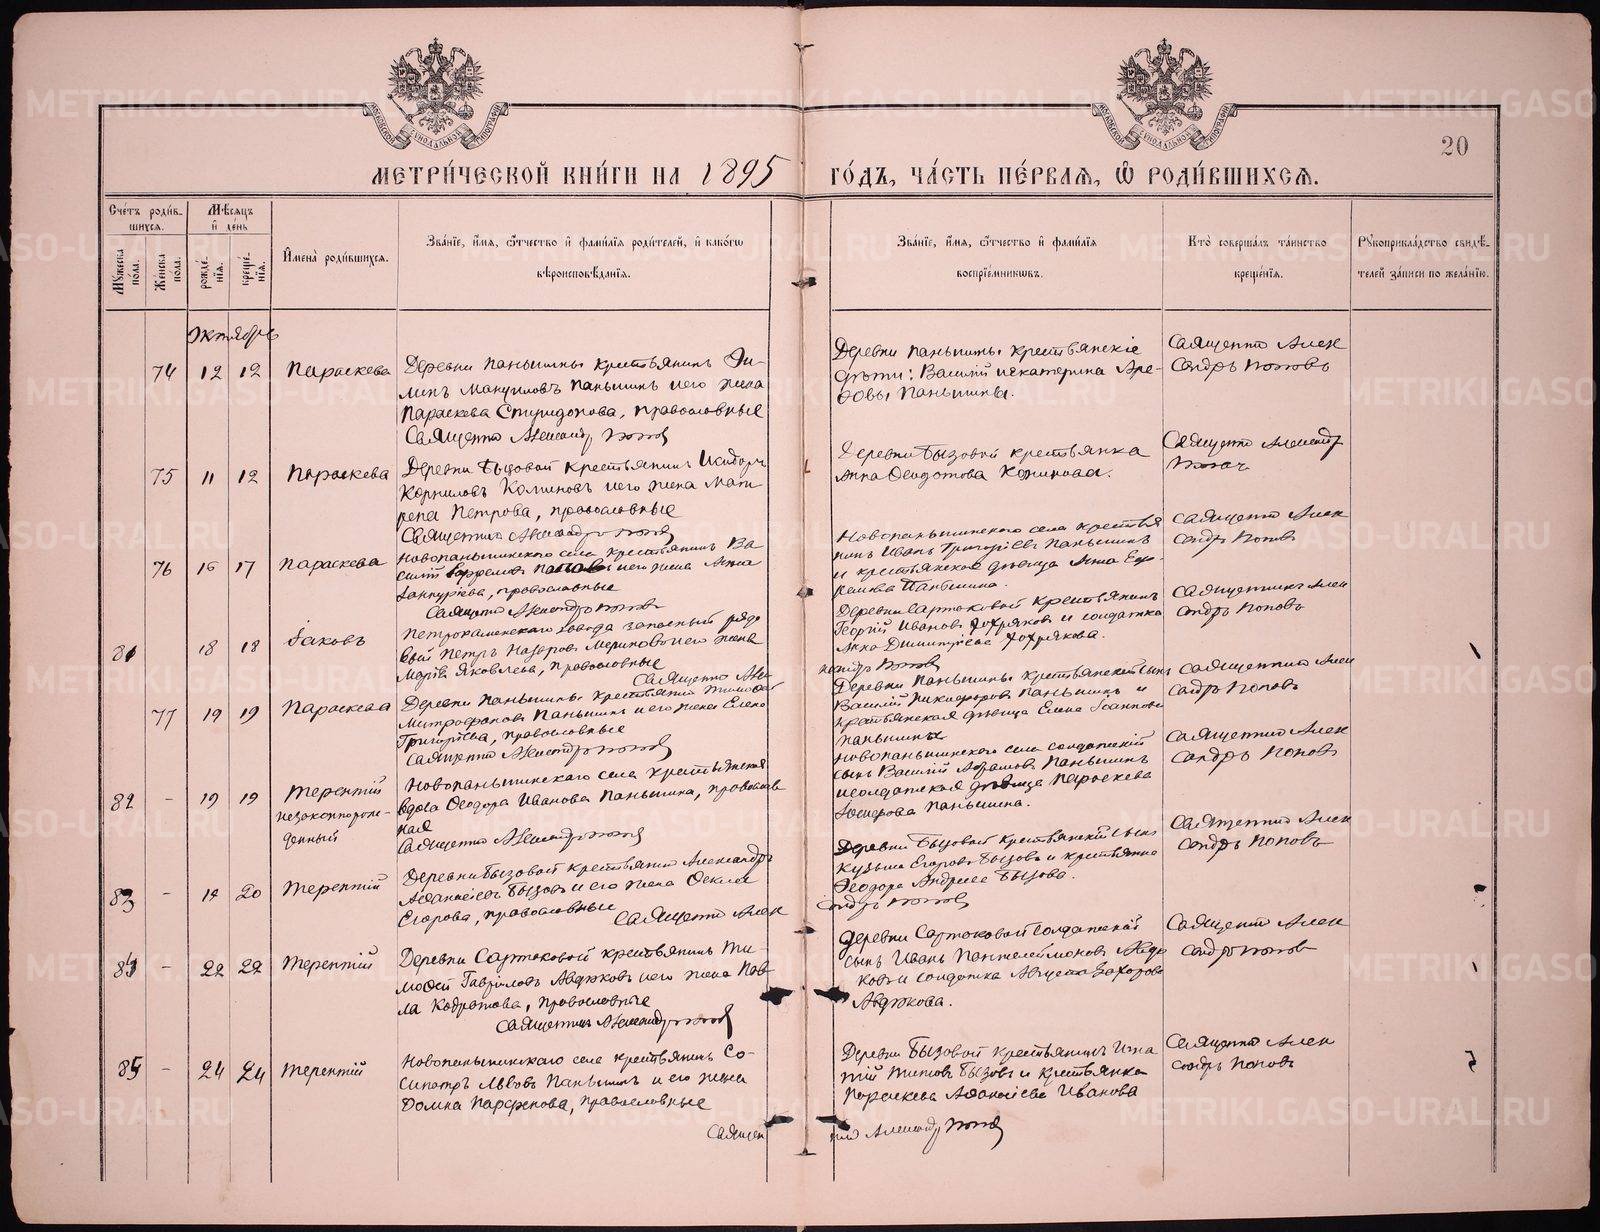 20
МЕТРИ́ЧЕСКОЙ КНИ́ГИ НА 1895 ГО́ДЪ, ЧА́СТЬ ПЕ́РВАЯ, Ѡ҆ РОДИ́ВШИХСЯ.
Сче́тъ роди́в-
шихся.
Му́жеска по́ла.
Же́нска по́ла.
Мѣ́сяцъ и҆ де́нь
рожде́нїя.
креще́нїя.
И҆мена̀ роди́вшихся.
Зва́нїе, и҆́мя, ѻ҆́тчество и҆ фами́лїя роди́телей, и҆ како́гѡ
вѣроисповѣ́данїя.
Зва́нїе, и҆́мя, ѻ҆́тчество и҆ фами́лїя
воспрїе́мникѡвъ.
Кто̀ соверша́лъ та́инство
креще́нїя.
Рꙋкоприкла́дство свидѣ́-
телей за́писи по жела́нїю.
Октябрь
74 12 12 Параскева
Деревни Паньшины крестьянинъ
Мануиловъ Паньшинъ и его жена
Параскева Спиридонова, православные
Священникъ Александръ Поповъ
Деревни Паньшины крестьянскіе
дѣти: Василій и Екатерина
Паньшины.
Священникъ Алек
сандръ Поповъ
75 11 12 Параскева
Деревни Бызовой крестьянинъ
Корниловъ и его жена Мат
рена Петрова, православные
Священникъ Александръ Поповъ
Деревни Бызовой крестьянка
Анна Ѳеодотова
Священникъ Александръ
Поповъ
76 16 17 Параскева
Новопаньшинского села крестьянинъ Ва
силій и его жена Анна
православные
Священникъ Александръ Поповъ
Новопаньшинского села крестья
нинъ Иванъ Григорьевъ Паньшинъ
и крестьянская дѣвица Анна
Паньшина.
Священникъ Алек
сандръ Поповъ
81 18 18 Іаковъ
Петрокаменского завода запасный рядо
вый Петръ и его жена
Марія Яковлева, православные
Священникъ Алек
сандръ Поповъ
Деревни Сартаковой крестьянинъ
Георгій Ивановъ и солдатка
Анна Димитріева
Священникъ Алек
сандръ Поповъ
77 19 19 Параскева
Деревни Паньшины крестьянинъ Тимоѳей
Митрофановъ Паньшинъ и его жена Елена
Григорьева, православные
Священникъ Александръ Поповъ
Деревни Паньшины крестьянскій сынъ
Василій Никифоровъ Паньшинъ и
крестьянская дѣвица Елена Іоаннова
Паньшины
Священникъ Алек
сандръ Поповъ
82 - 19 19 Терентій
незаконнорож-
денный
Новопаньшинскаго села крестьянская
вдова Ѳеодора Иванова Паньшина, православ
ная
Священникъ Александръ Поповъ
Новопаньшинскаго села солдатскій
сынъ Василій Абрамовъ Паньшинъ
и солдатская дѣвица Параскева
Паньшина.
Священникъ Алек
сандръ Поповъ
83 - 19 20 Терентій
Деревни Бызовой крестьянинъ Александръ
Аѳанасіевъ Бызовъ и его жена Ѳекла
Егорова, православные
Священникъ Алек
сандръ Поповъ
Деревни Бызовой крестьянскій сынъ
Кузьма Егоровъ Бызовъ и крестьянка
Ѳеодора Андреева Бызова.
Священникъ Алек
сандръ Поповъ
84 - 22 22 Терентій
Деревни Сартаковой крестьянинъ Ти-
моѳей Гавриловъ Авджковъ и его жена Пав
ла Кодратова, православные
Священникъ Александръ Поповъ
Деревни Сартаковой солдатскій
сынъ Иванъ Пантелеймоновъ Авдю
ковъ и солдатка Захарова
Авдюкова.
Священникъ Алек
сандръ Поповъ
85 - 24 24 Терентій
Новопаньшинскаго села крестьянинъ Со-
сипатръ Львовъ Паньшинъ и его жена
Домна Парфенова, православные
Священ
никъ Александръ Поповъ
Деревни Бызовой крестьянинъ Игна
тій Титовъ Бызовъ и крестьянка
Параскева Аѳанасіева Иванова
Священникъ Алек
сандръ Поповъ
METRIKI.GASO-URAL.RU